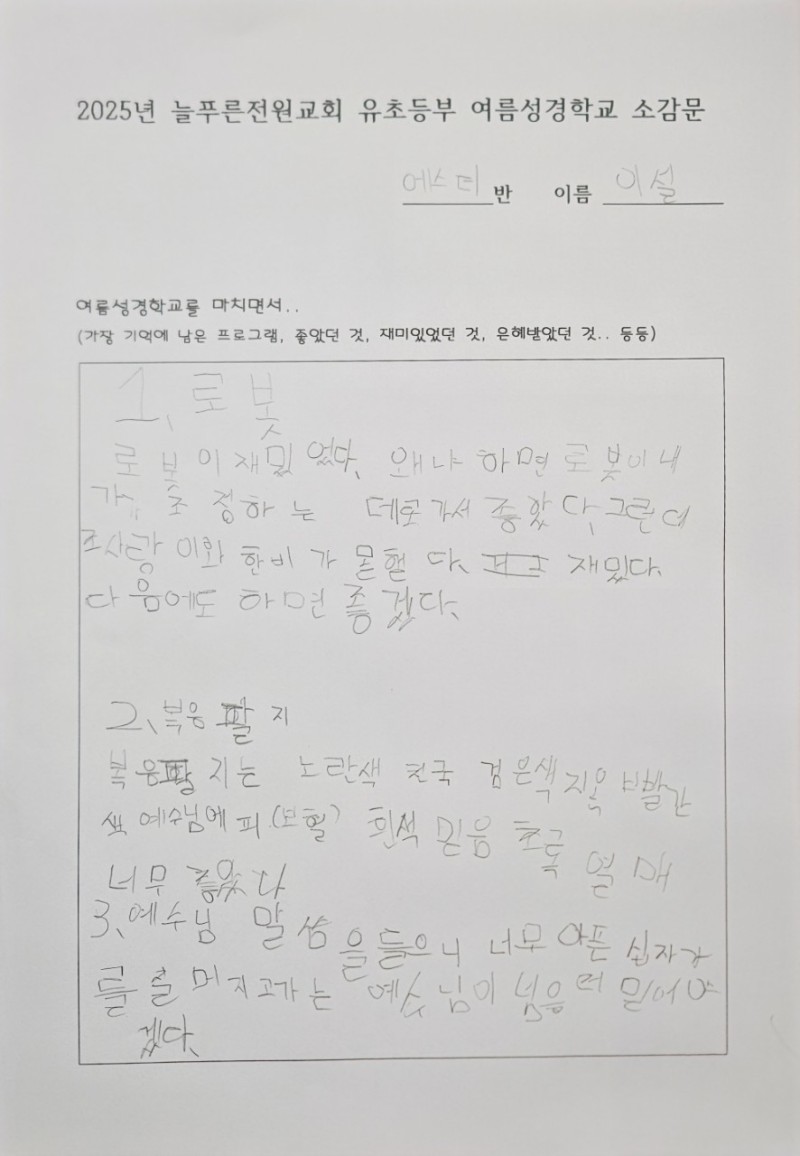 2025년 늘푸른전원교회 유초등부 여름성경학교 소감문
에스더 반 이름 이설
여름성경학교를 마치면서..
(가장 기억에 남은 프로그램, 좋았던 것, 재미있었던 것, 은혜받았던 것.. 등등)
1. 로봇
로봇이 재밌었다. 왜냐하면 로봇이 내
가 조정하는 데로 가서 좋았다. 그런데
조사랑 이와 한비가 못헬다. 재밌다.
다음에도 하면 좋겠다.
2. 복음팔지
복음팔지는 노란색 천국 검은색 지옥 빨간
색 예수님에 피(보혈) 흰색 믿음 초록 열매
너무 좋았다
3. 예수님 말씀을 들으니 너무 아픈 십자가
를 질머지고가는 예수님이 믿어야
겠다.